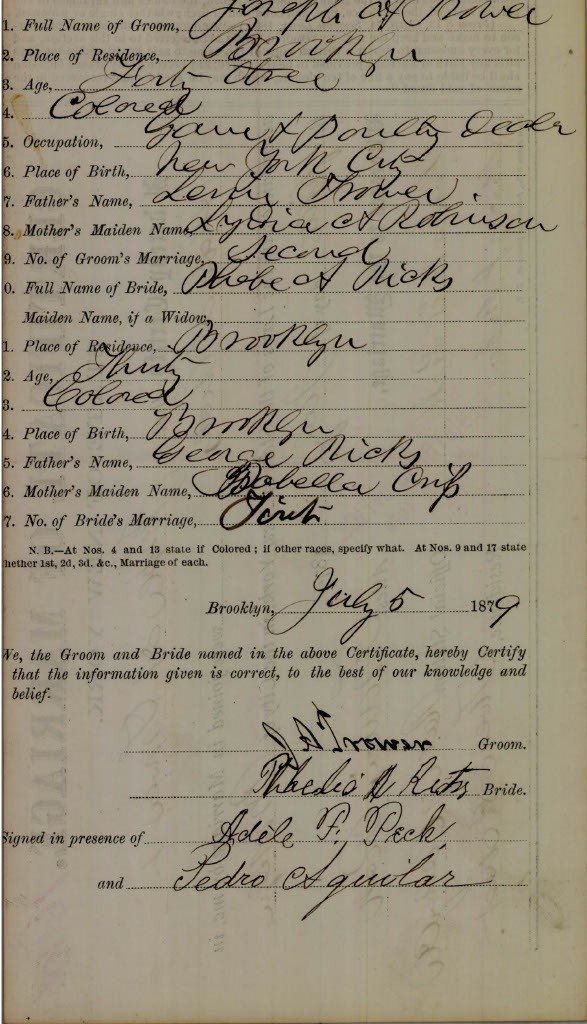 1. Full Name of Groom, Joseph A Trower
2. Place of Residence, Brooklyn
3. Age, Forty three
4. Colored
5. Occupation, Game & Poultry Dealer
6. Place of Birth, New York City
7. Father's Name, Trower
8. Mother's Maiden Name, Lydia A Robinson
9. No. of Groom's Marriage, Second
0. Full Name of Bride, Phebe A Ricks
Maiden Name, if a Widow,
1. Place of Residence, Brooklyn
2. Age, Thirty
3. Colored
4. Place of Birth, Brooklyn
5. Father's Name, George Ricks
6. Mother's Maiden Name, Isabella
7. No. of Bride's Marriage, First
N. B.—At Nos. 4 and 13 state if Colored ; if other races, specify what. At Nos. 9 and 17 state
hether 1st, 2d, 3d. &c., Marriage of each.
Brooklyn, July 5 1879
We, the Groom and Bride named in the above Certificate, hereby Certify
that the information given is correct, to the best of our knowledge and
belief.
J A Trower Groom.
Bride.
Signed in presence of Adele F. Peck,
and Pedro Aguilar